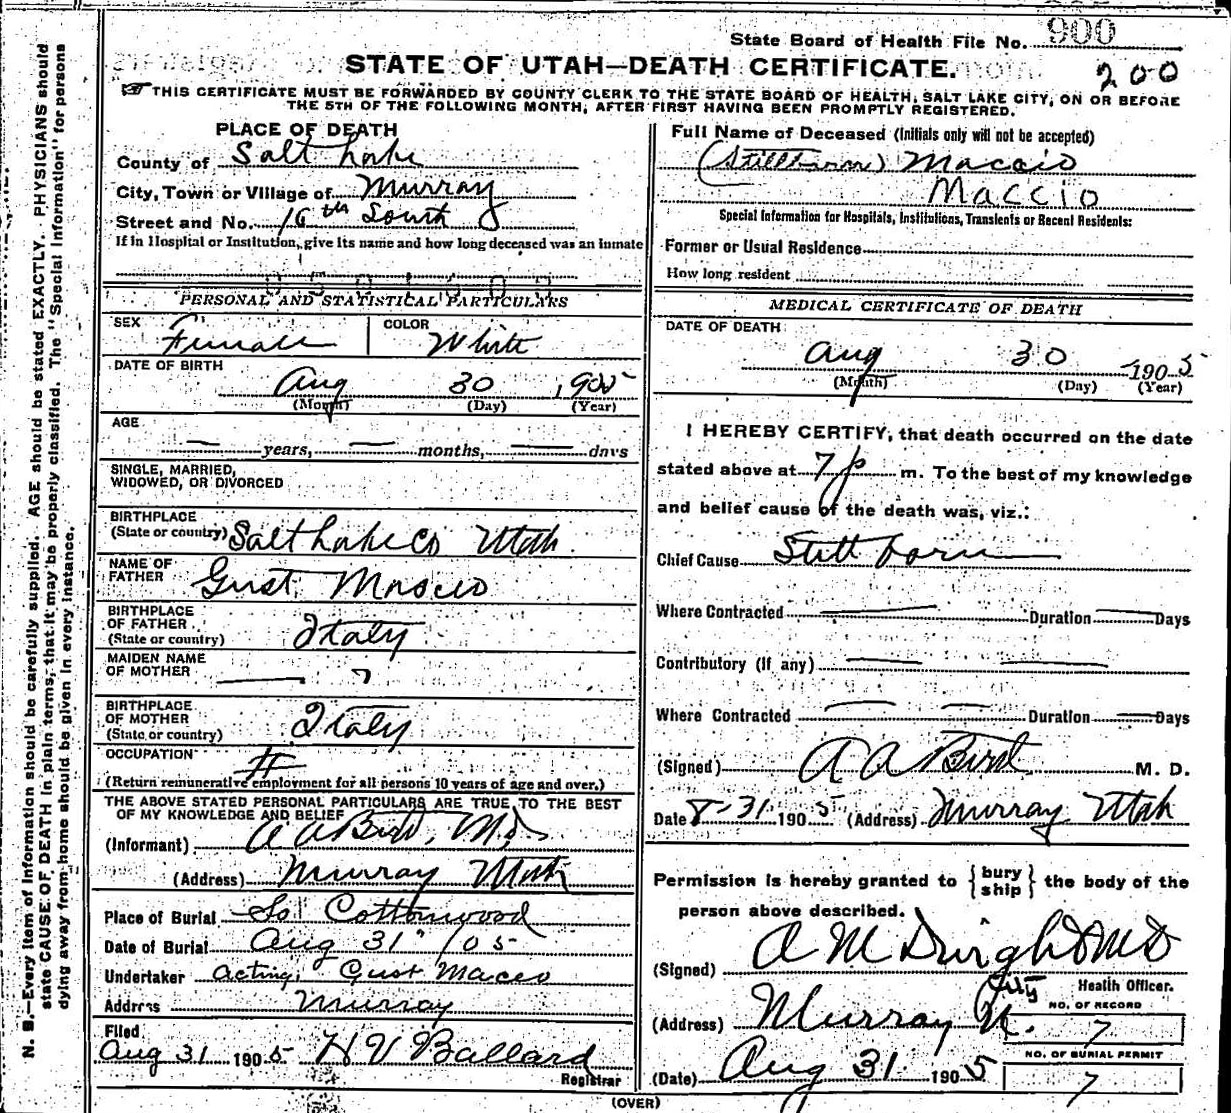 State Board of Health File No. 900
STATE OF UTAH—DEATH CERTIFICATE.
200
THIS CERTIFICATE MUST BE FORWARDED BY COUNTY CLERK TO THE STATE BOARD OF HEALTH, SALT LAKE CITY, ON OR BEFORE
THE 5TH OF THE FOLLOWING MONTH, AFTER FIRST HAVING BEEN PROMPTLY REGISTERED.
N. B.—Every item of information should be carefully supplied. AGE should be stated EXACTLY. PHYSICIANS should
state CAUSE OF DEATH in plain terms, that it may be properly classified. The "Special Information" for persons
dying away from home should be given in every instance.
PLACE OF DEATH
County of Salt Lake
City, Town or Village of Murray
Street and No. 16th South
If in Hospital or Institution, give its name and how long deceased was an inmate
PERSONAL AND STATISTICAL PARTICULARS
SEX Female COLOR White
DATE OF BIRTH
Aug 30 1905
(Month) (Day) (Year)
AGE
years, months, days
SINGLE, MARRIED,
WIDOWED, OR DIVORCED
BIRTHPLACE
(State or country) Salt Lake Co Utah
NAME OF
FATHER Gust Maccio
BIRTHPLACE
OF FATHER
(State or country) Italy
MAIDEN NAME
OF MOTHER ?
BIRTHPLACE
OF MOTHER
(State or country) Italy
OCCUPATION
(Return remunerative employment for all persons 10 years of age and over.)
THE ABOVE STATED PERSONAL PARTICULARS ARE TRUE TO THE BEST
OF MY KNOWLEDGE AND BELIEF
(Informant) A A Bird, M.D.
(Address) Murray Utah
Place of Burial So Cottonwood
Date of Burial Aug 31" /05
Undertaker acting, Gust Maceo
Address Murray
Filed
Aug 31 1905 H V Ballard
Registrar
Full Name of Deceased (Initials only will not be accepted)
(Stillborn) Maccio
Maccio
Special Information for Hospitals, Institutions, Transients or Recent Residents:
Former or Usual Residence
How long resident
MEDICAL CERTIFICATE OF DEATH
DATE OF DEATH
Aug 30 1905
(Month) (Day) (Year)
I HEREBY CERTIFY, that death occurred on the date
stated above at 7 p m. To the best of my knowledge
and belief cause of the death was, viz.:
Chief Cause Still born
Where Contracted Duration Days
Contributory (If any)
Where Contracted Duration Days
(Signed) A A Bird M. D.
Date 8-31 1905 (Address) Murray Utah
Permission is hereby granted to {bury ship} the body of the
person above described.
(Signed) A M Dwight MD
City Health Officer.
(Address) Murray U.
NO. OF RECORD
7
NO. OF BURIAL PERMIT
7
(Date) Aug 31 1905
(OVER)